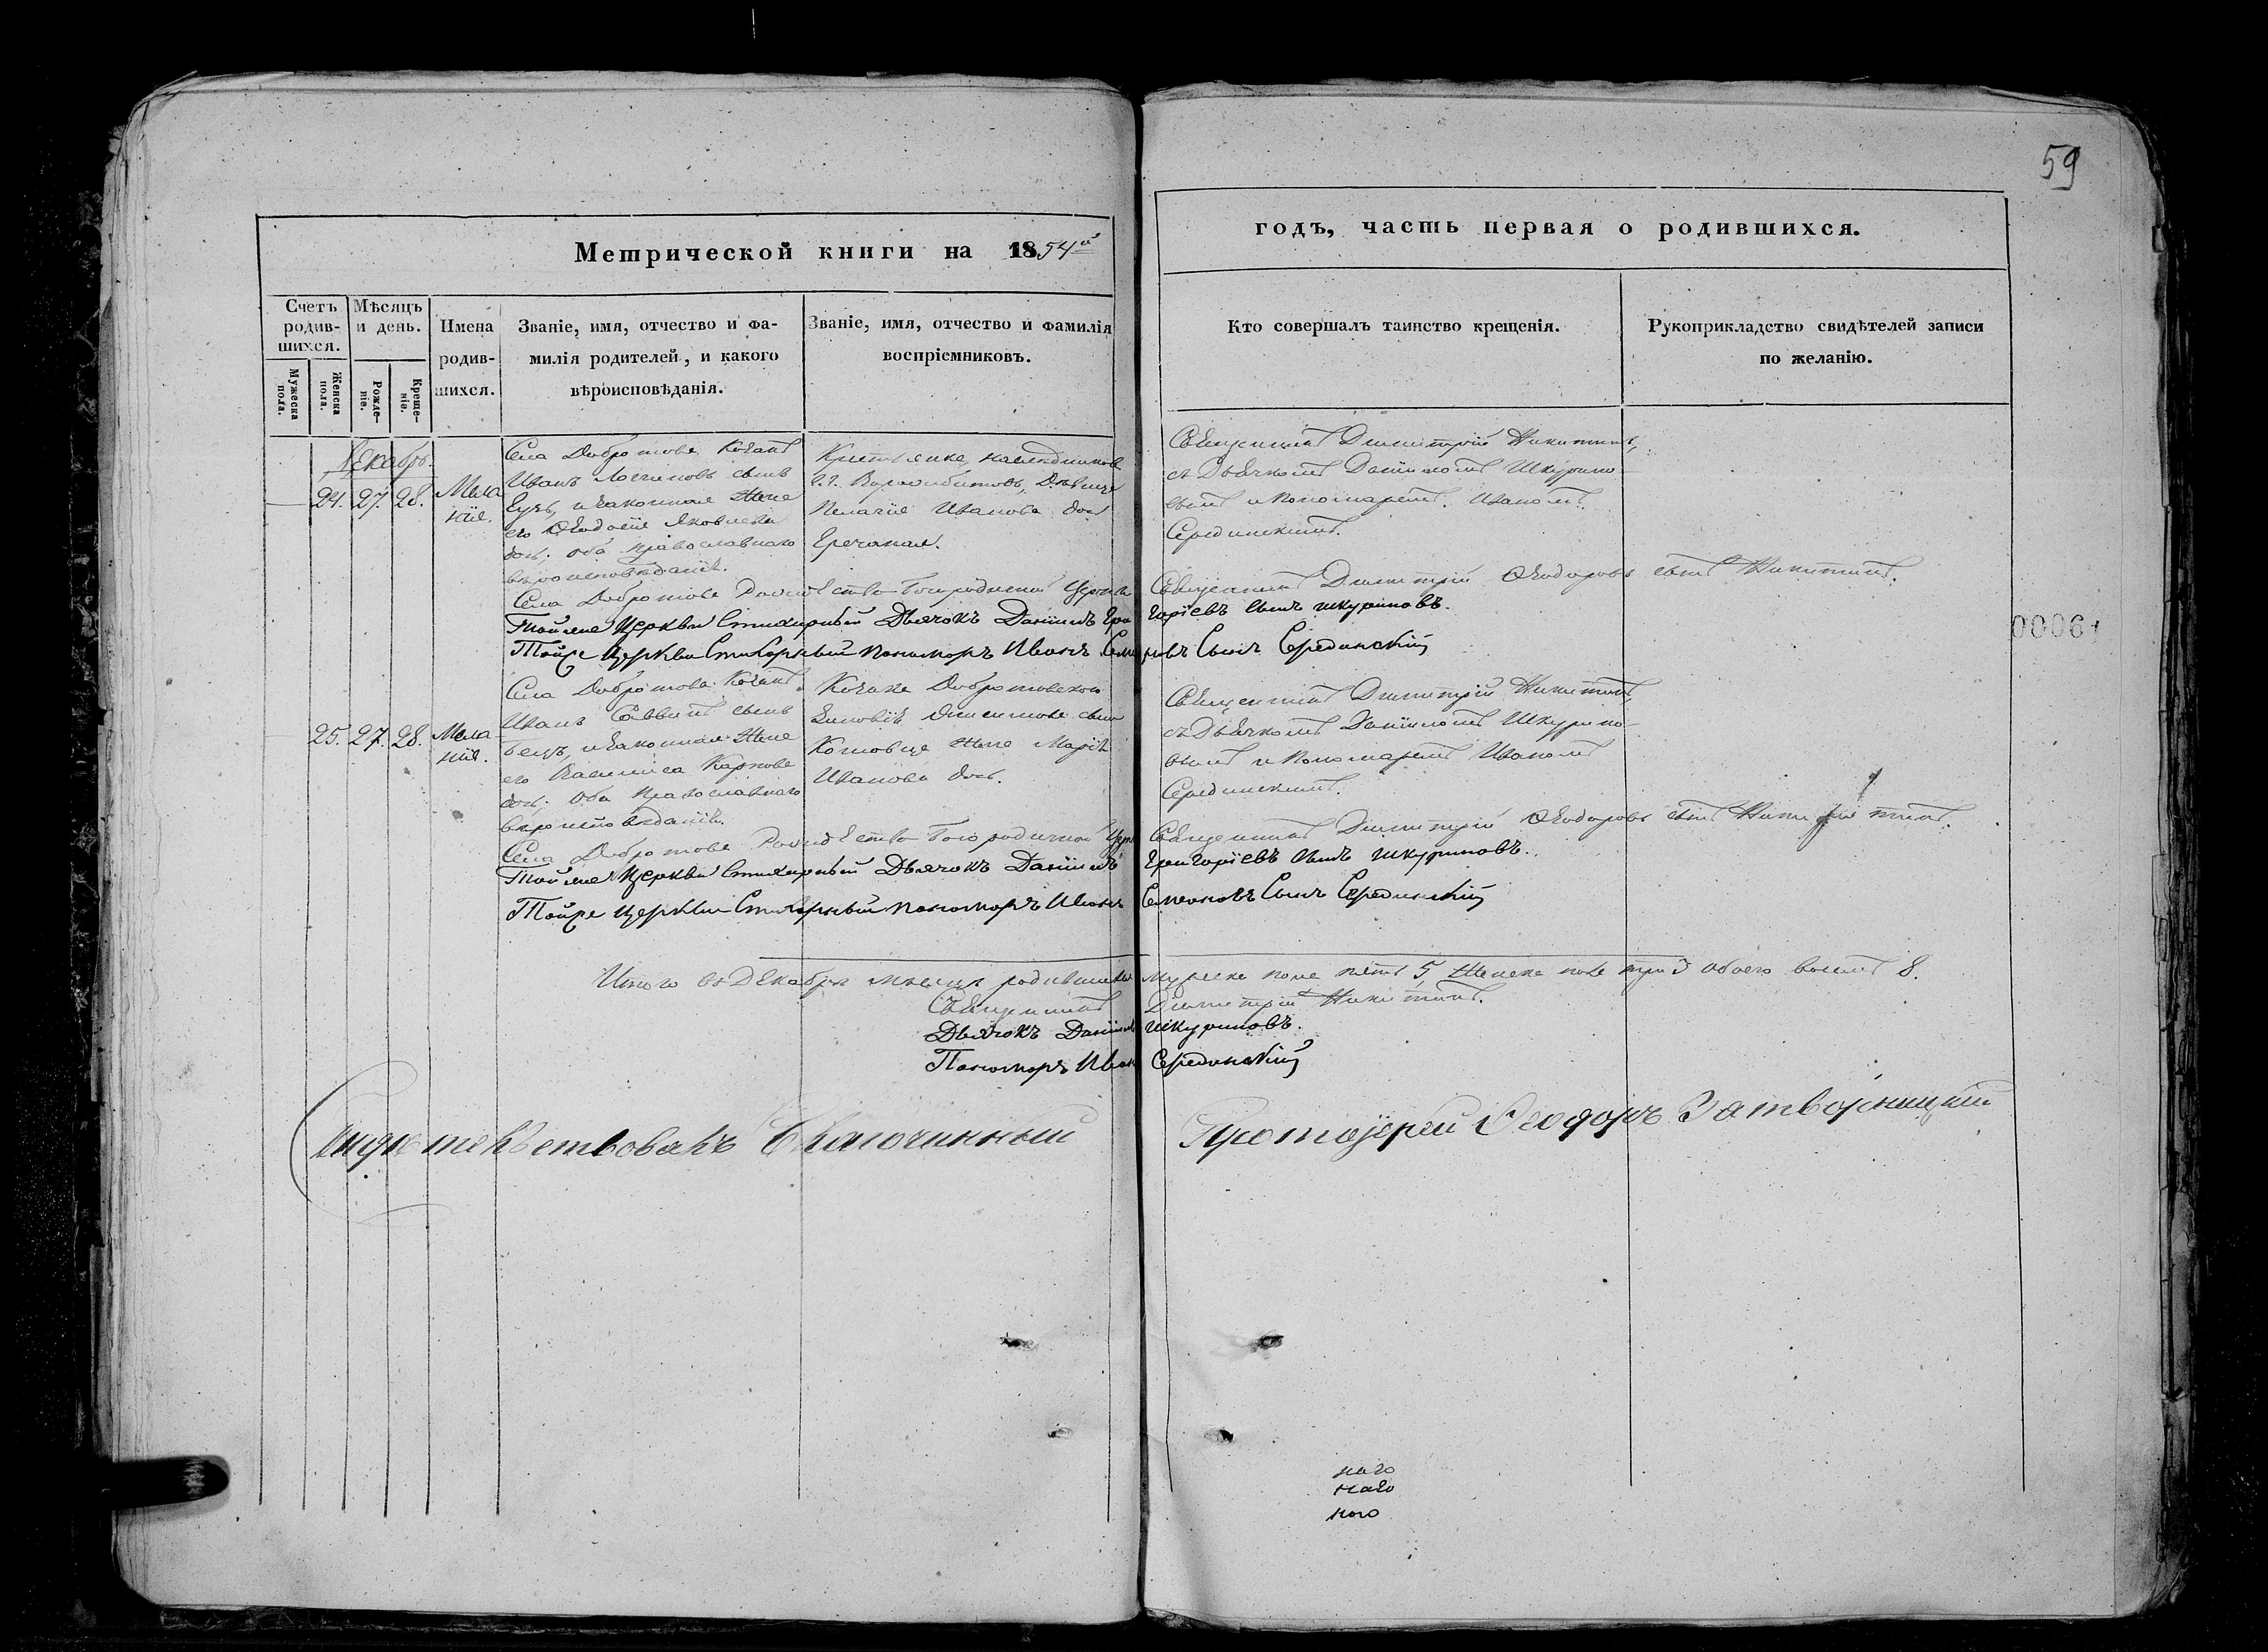 59
Метрической книги на 1854й
годъ, часть первая о родившихся.
Счетъ родив-шихся.
Мужеска пола.
Женска пола.
Мѣсяцъ и день.
Рожде-ніе.
Креще-ніе.
Имена родив-шихся.
Званіе, имя, отчество и фа-
милія родителей, и какого
вѣроисповѣданія.
Званіе, имя, отчество и фамилія
воспріемниковъ.
Кто совершалъ таинство крещенія.
Рукоприкладство свидѣтелей записи
по желанію.
Декабрь.
24. 27. 28.
Мела
нія.
Села Добротова Козакъ
Иванъ сынъ
и законная жена
его Ѳеодосія Яковлева
доч. оба православнаго
вѣроисповѣданія.
Крестьянка, наслѣдниковъ
дѣвица
Пелагія Иванова доч
Гречаная.
Священникъ Димитрій Никитинъ,
съ Дьячкомъ Даніиломъ Шкурино-
вымъ и Пономаремъ Иваномъ
Серединскимъ.
Села Добротова Рождество Богородичной Церкви Священникъ Димитрій Ѳеодоровъ сынъ Никитинъ.
Тойже Церкви Стихарный Дьячокъ Даніилъ Григоріевъ Сынъ Шкуриновъ.
Тойже Церкви Стихарный Пономарь Иванъ Семеновъ Сынъ Серединскій
25. 27. 28.
Мела
нія.
Села Добротова Козакъ
Иванъ Саввинъ сынъ
и законная жена
его Василиса Карпова
доч. оба Православнаго
вѣроисповѣданія.
Козака Добротовскаго
Зиновія сына
жена Марія
Иванова доч.
Священникъ Димитрій Никитинъ,
съ Дьячкомъ Даніиломъ Шкурино-
вымъ и Пономаремъ Иваномъ
Серединскимъ.
Села Добротова Рождество Богородичной Церкви Священникъ Димитрій Ѳеодоровъ сынъ Никитинъ.
Тойже Церкви Стихарный Дьячокъ Даніилъ Григоріевъ Сынъ Шкуриновъ.
Тойже Церкви Стихарный Пономарь Иванъ Семеновъ Сынъ Серединскій
00061
Итого въ Декабрѣ мѣсяцѣ родившихся мужеска пола пять 5, женска пола три 3 обоего восемь 8.
Священникъ Димитрій Никитинъ.
Дьячокъ Даніилъ Шкуриновъ.
Пономарь Иванъ Серединскій
Свидѣтельствовалъ Благочинный Протоіерей Ѳеодоръ Затворницкій
наго
наго
ного